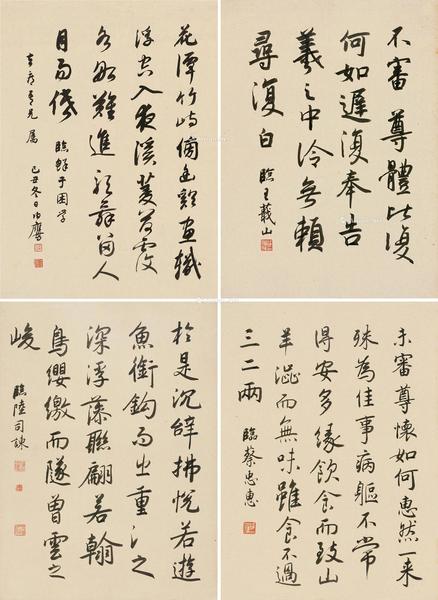 不審尊體比復
何如遲復奉告
羲之中冷無賴
尋復白
臨王蕺山
花潭竹嶼傍幽蹊畫檝
浮空入夜溪芰荷覆
水船難進歌舞留人
月易低
臨鮮于困學
己丑冬日伯鷹
吾兄屬
未審尊懷如何惠然一來
殊為佳事病軀不常
得安多緣飲食而致山
羊澁而無味雖食不過
三二兩
臨蔡忠惠
於是沉辭拂悅若遊
魚銜鈎而出重淵之
深浮藻聯翩若翰
鳥纓繳而墜曾雲之
峻
臨陸司諫